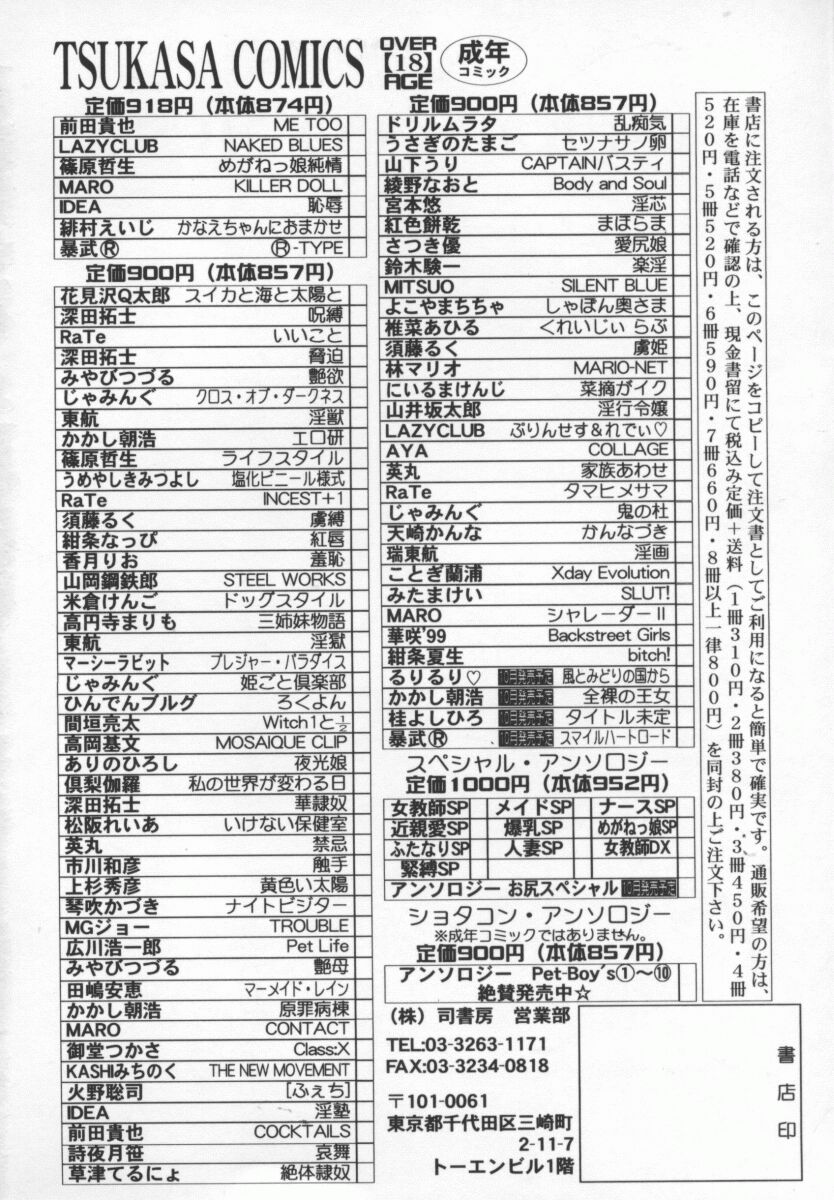 TSUKASA COMICS
OVER
【18】
AGE
成年
コミック
定価918円（本体874円）
前田貴也 ME TOO
LAZYCLUB NAKED BLUES
篠原哲生 めがねっ娘純情
MARO KILLER DOLL
IDEA 恥辱
緋村えいじ かなえちゃんにおまかせ
暴武Ⓡ Ⓡ-TYPE
定価900円（本体857円）
花見沢Q太郎 スイカと海と太陽と
深田拓士 呪縛
RaTe いいこと
深田拓士 脅迫
みやびつづる 艶欲
じゃみんぐ クロス・オブ・ダークネス
東航 淫獣
かかし朝浩 エロ研
篠原哲生 ライフスタイル
うめやしきみつよし 塩化ビニール様式
RaTe INCEST+1
須藤るく 虜縛
紺条なっぴ 紅唇
香月りお 羞恥
山岡鋼鉄郎 STEEL WORKS
米倉けんご ドッグスタイル
高円寺まりも 三姉妹物語
東航 淫獄
マーシーラビット プレジャー・パラダイス
じゃみんぐ 姫ごと倶楽部
ひんでんブルグ ろくよん
間垣亮太 Witch1と½
高岡基文 MOSAIQUE CLIP
ありのひろし 夜光娘
倶梨伽羅 私の世界が変わる日
深田拓士 華隷奴
松阪れいあ いけない保健室
英丸 禁忌
市川和彦 触手
上杉秀彦 黄色い太陽
琴吹かづき ナイトビジター
MGジョー TROUBLE
広川浩一郎 Pet Life
みやびつづる 艶母
田嶋安恵 マーメイド・レイン
かかし朝浩 原罪病棟
MARO CONTACT
御堂つかさ Class:X
KASHIみちのく THE NEW MOVEMENT
火野聡司 [ふぇち]
IDEA 淫塾
前田貴也 COCKTAILS
詩夜月笹 哀舞
草津てるにょ 絶体隷奴
定価900円（本体857円）
ドリルムラタ 乱痴気
うさぎのたまご セツナサノ卵
山下うり CAPTAINバスティ
綾野なおと Body and Soul
宮本悠 淫芯
紅色餅乾 まほらま
さつき優 愛尻娘
鈴木験一 楽淫
MITSUO SILENT BLUE
よこやまちちゃ しゃぼん奥さま
椎菜あひる くれいじぃ らぶ
須藤るく 虜姫
林マリオ MARIO-NET
にいるまけんじ 菜摘がイク
山井坂太郎 淫行令嬢
LAZYCLUB ぷりんせす＆れでぃ♡
AYA COLLAGE
英丸 家族あわせ
RaTe タマヒメサマ
じゃみんぐ 鬼の杜
天崎かんな かんなづき
瑞東航 淫画
ことぎ蘭浦 Xday Evolution
みたまけい SLUT!
MARO シャレーダーⅡ
華咲'99 Backstreet Girls
紺条夏生 bitch!
るりるり♡ 10月発売予定 風とみどりの国から
かかし朝浩 10月発売予定 全裸の王女
桂よしひろ 10月発売予定 タイトル未定
暴武Ⓡ 10月発売予定 スマイルハートロード
スペシャル・アンソロジー
定価1000円（本体952円）
女教師SP メイドSP ナースSP
近親愛SP 爆乳SP めがねっ娘SP
ふたなりSP 人妻SP 女教師DX
緊縛SP
アンソロジー お尻スペシャル 10月発売予定
ショタコン・アンソロジー
※成年コミックではありません。
定価900円（本体857円）
アンソロジー Pet-Boy's①～⑩
絶賛発売中☆
（株）司書房 営業部
TEL:03-3263-1171
FAX:03-3234-0818
〒101-0061
東京都千代田区三崎町
2-11-7
トーエンビル1階
書店印
書店に注文される方は、このページをコピーして注文書としてご利用になると簡単で確実です。通販希望の方は、
在庫を電話などで確認の上、現金書留にて税込み定価＋送料（1冊310円・2冊380円・3冊450円・4冊
520円・5冊520円・6冊590円・7冊660円・8冊以上一律800円）を同封の上ご注文下さい。